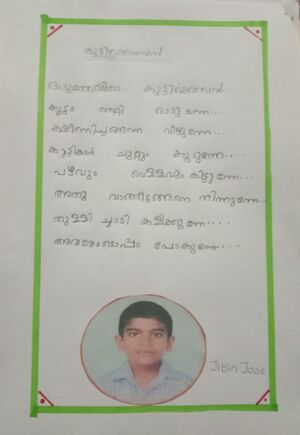 കുട്ടിക്കൊമ്പൻ
ഓടുന്നേയിതാ... കുട്ടിക്കൊമ്പൻ
കൂട്ടം തെറ്റി ഓടുന്നേ....
ക്ഷീണിച്ചങ്ങനെ വീഴുന്നേ.....
കുട്ടികൾ ചുറ്റും കൂടുന്നേ....
പഴവും വെള്ളവും കിട്ടുന്നേ...
അതു വാങ്ങീട്ടങ്ങനെ നിന്നുന്നേ...
തുള്ളി ച്ചാടി കളിക്കുന്നേ....
അവരോടൊപ്പം പോകുന്നേ...
Jibin Jose